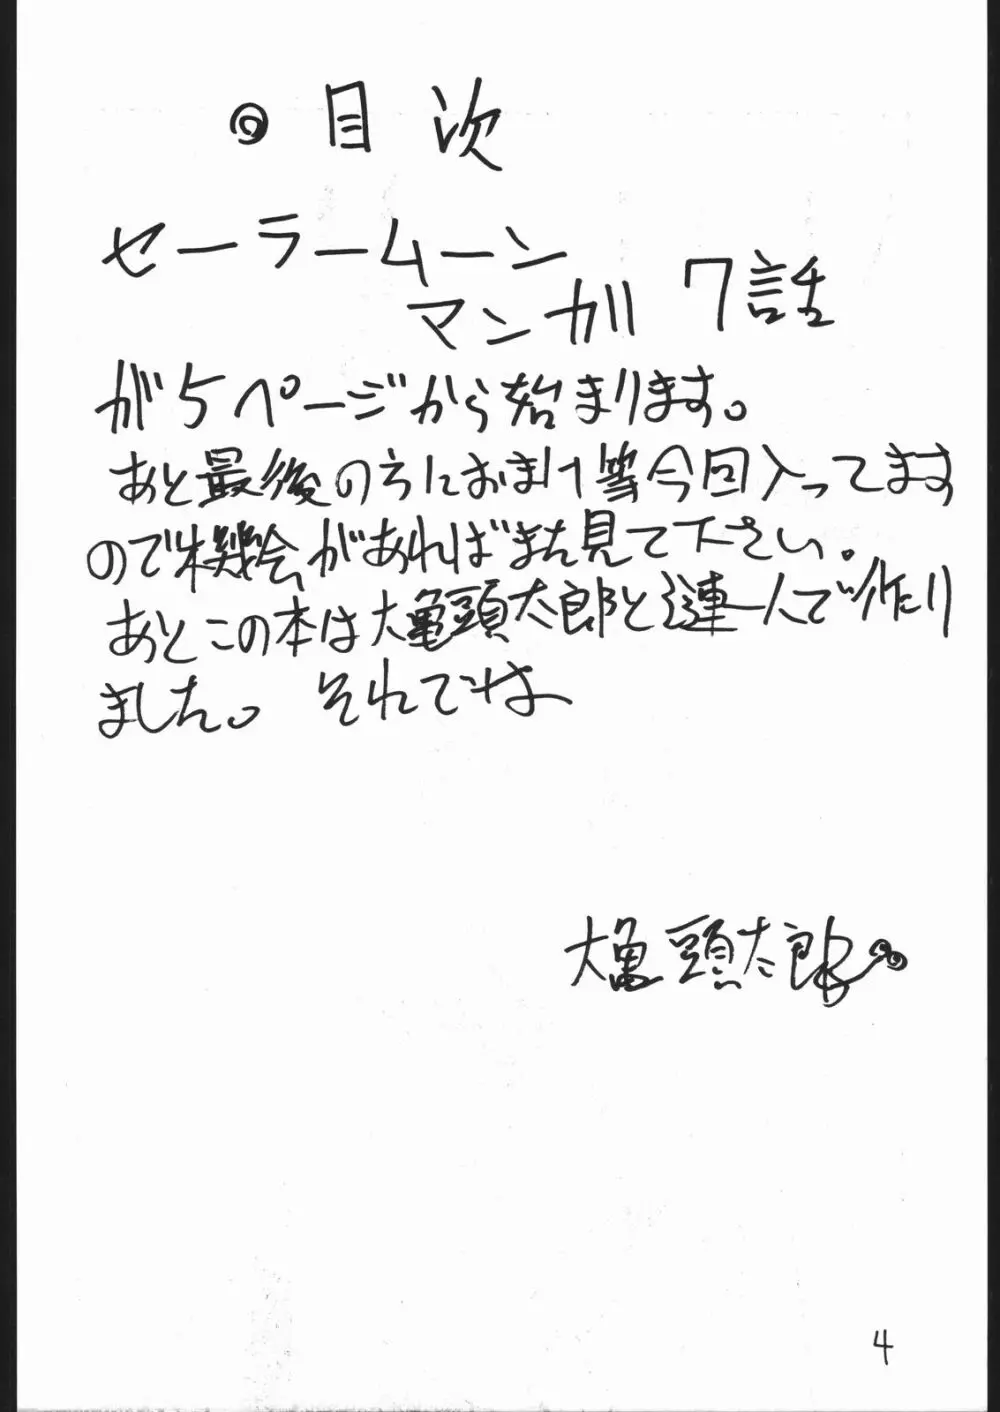 ◎ 目次
セーラームーン
マンガ 7話
が5ページから始まります。
あと最後の方におまけ等今回入ってます
ので機会があればまた見て下さい。
あとこの本は大亀頭太郎と連一人で作り
ました。 それでは
大亀頭太郎
4